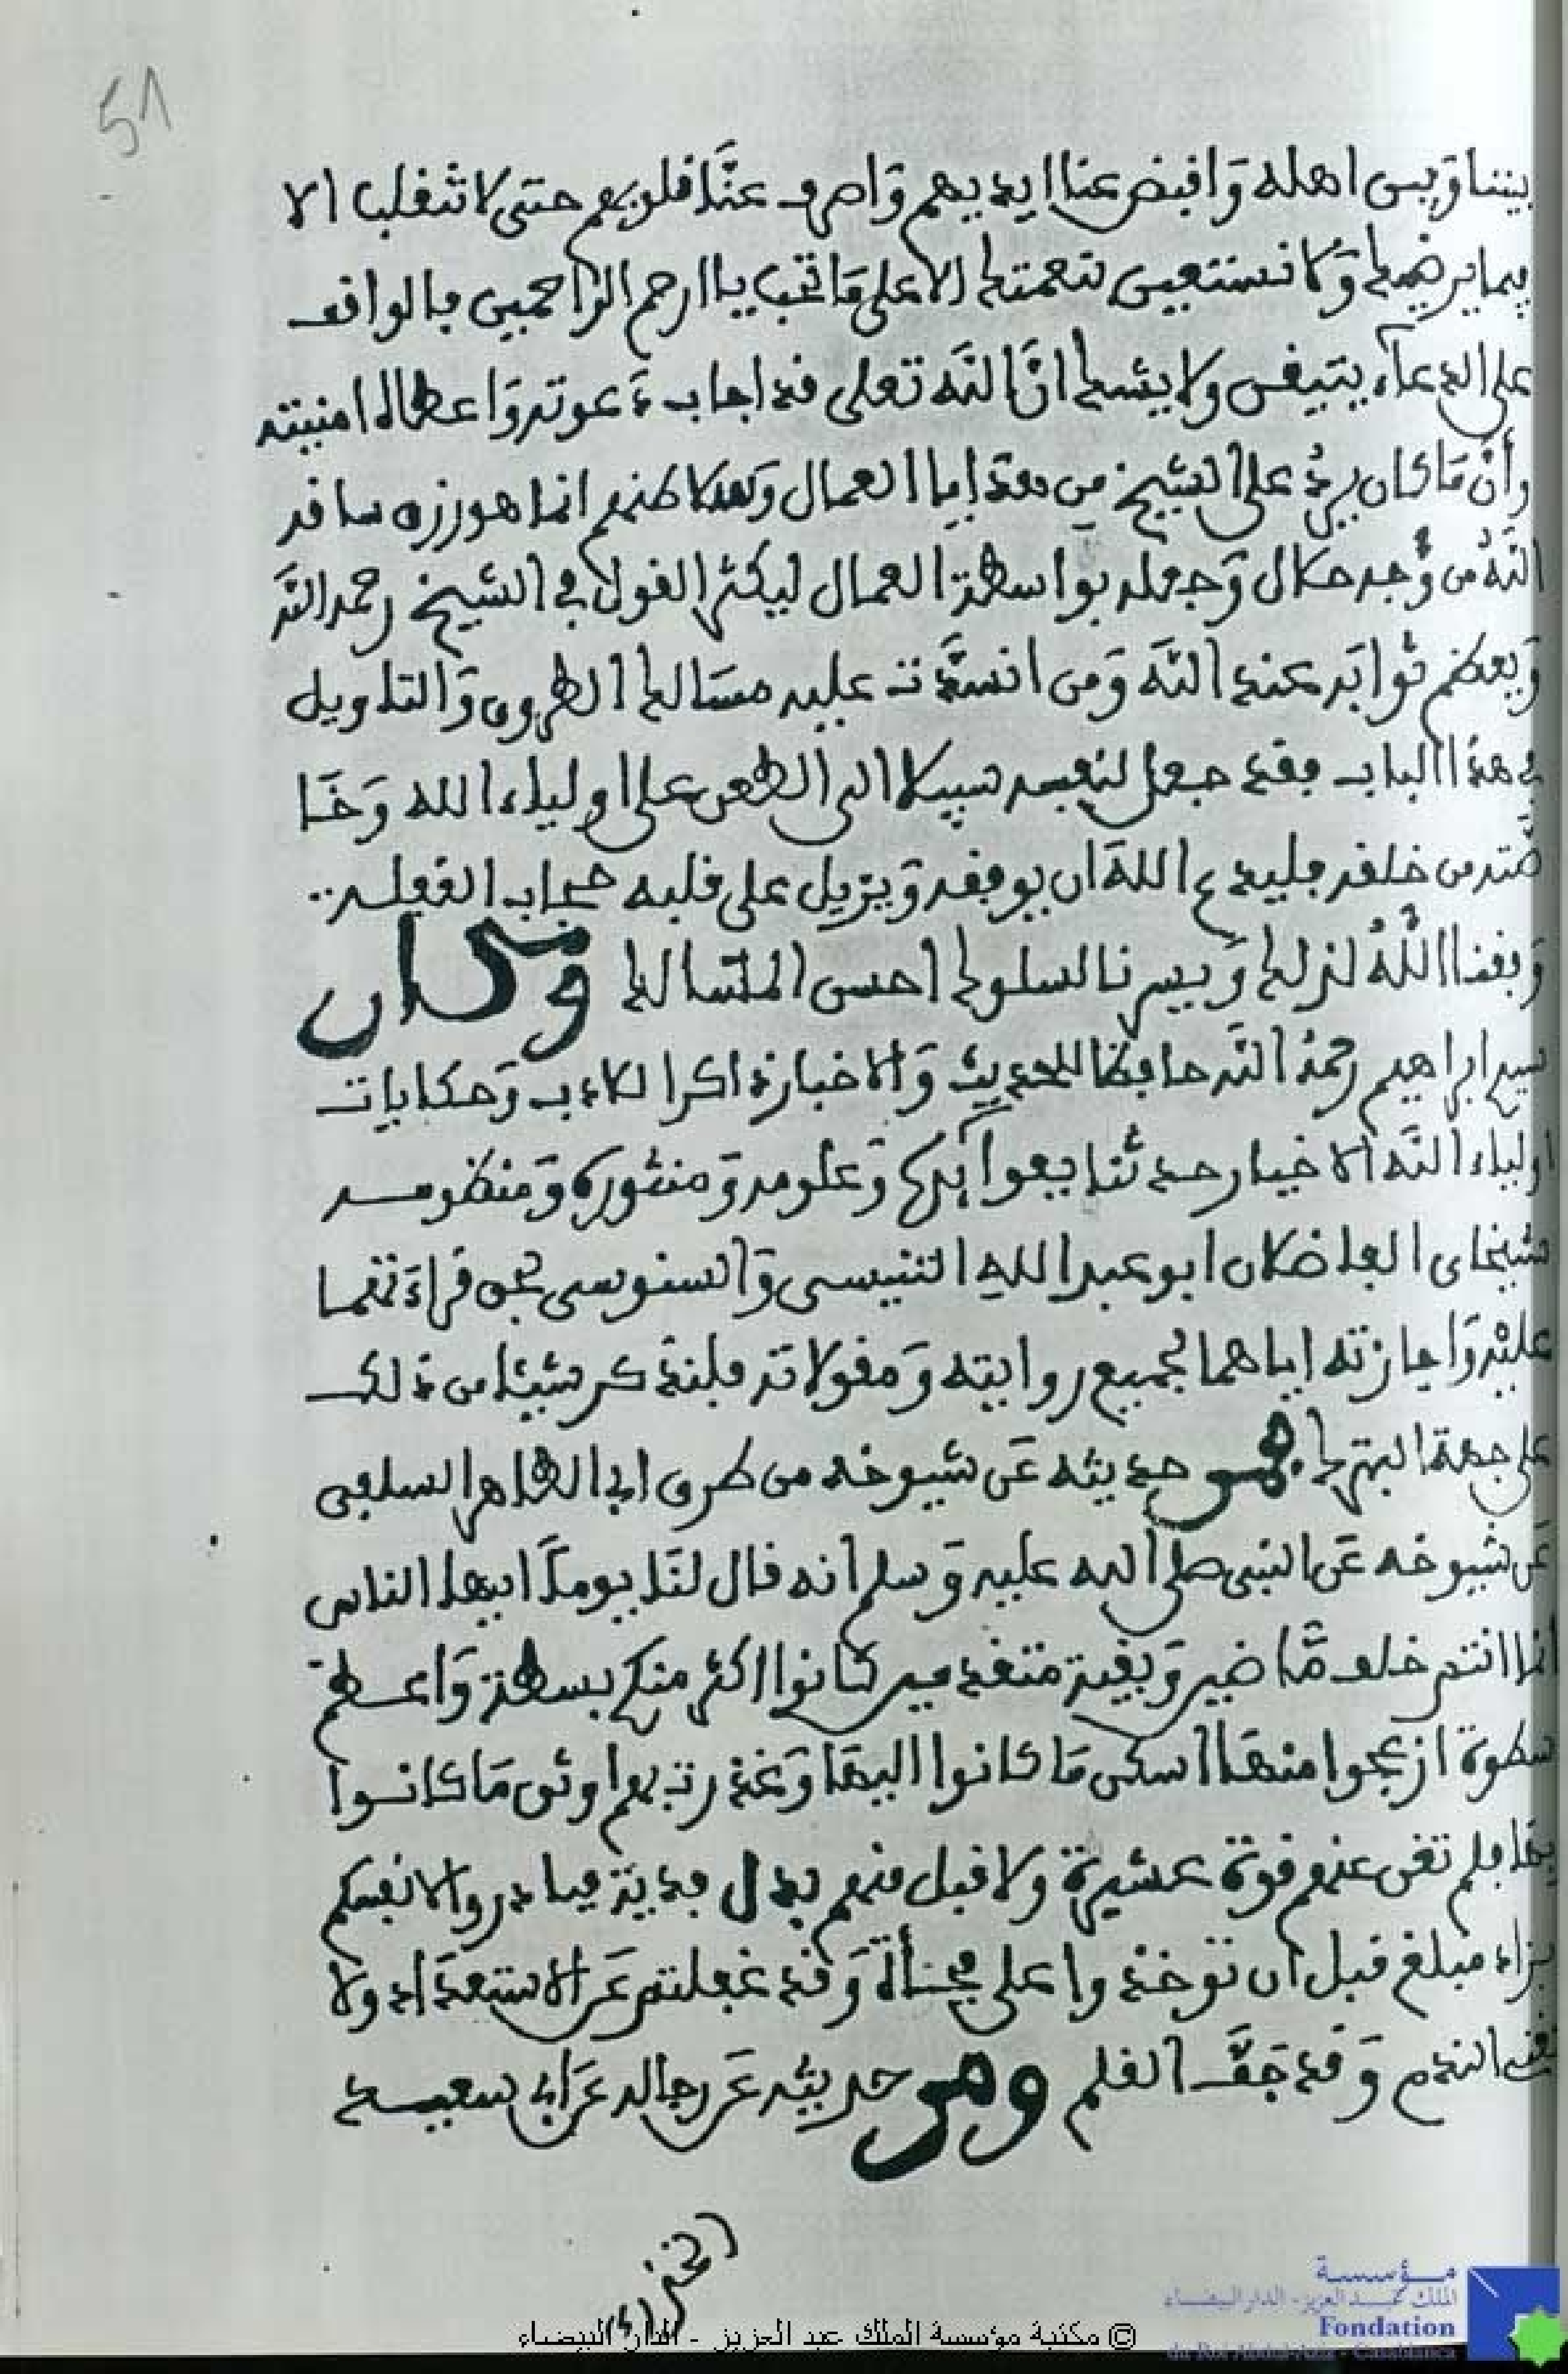 51
بيننا وبين اهله وافبض عنا ايديهم واصرف عنا فلوبهم حتى لا تنفلب الا
بيما يرضيك ولا نستعين بنعمتك الا على ما تحب يا ارحم الراحمين فالوافف
على الدعاء يتيفن ولا يشك ان الله تعلى فد اجاب دعوته واعطاه امنيته
وأن ما كان يرد على الشيخ من هدايا العمال انما هو رزق سافه
الله من وجه حلال وجعله بواسطة العمال ليكثر الفول في الشيخ رحمه الله
ويعظم ثوابه عند الله ومن انسدت عليه مسالك الطرق والتاويل
في هذا الباب بفد جعل لنفسه سبيلا الى الطعن على اولياء الله وخا
صته من خلفه فليدع الله ان يوففه ويزيل على فلبه حجاب الغفلة
وبفنا الله لذلك ويسرنا لسلوك احسن المسالك وكان
سيدي ابراهيم رحمه الله حافظا للحديث والاخبار ذاكرا للادب وحكايات
اولياء الله الاخيار حدثنا بفوائده وعلومه ومنثوره ومنظومه
شيخاي الفاضلان ابو عبد الله التنيسي والسنوسي عن فراءتهما
عليه واجازته اياهما بجميع روايته ومفولاته فلنذكر شيئا من ذلك
على جهة التبرك فمن حديثه عن شيوخه من طرق ابي الطاهر السلفي
عن شيوخه عن النبي صلى الله عليه وسلم انه فال لنا يوما ايها الناس
انما انتم خلف ماضين وبفية متفدمين كانوا اكثر منكم بسطة واعظم
سطوة ازعجوا منها اسكن ما كانوا اليها وغدرت بهم اوثق ما كانوا
بها فلم تغن عنهم فوة عشيرة ولا فبل منهم بدل فدية فبادروا لانفسكم
بزاد مبلغ فبل ان توخذوا على فجأة وفد غفلتم عن الاستعداد ولا
الندم وفد جف الفلم ومن حديثه عن رجاله عن ابي سعيد
الخدري
© مكتبة مؤسسة الملك عبد العزيز - الدار البيضاء
مؤسسة
الملك عبد العزيز - الدار البيضاء
Fondation
du Roi Abdul-Aziz - Casablanca